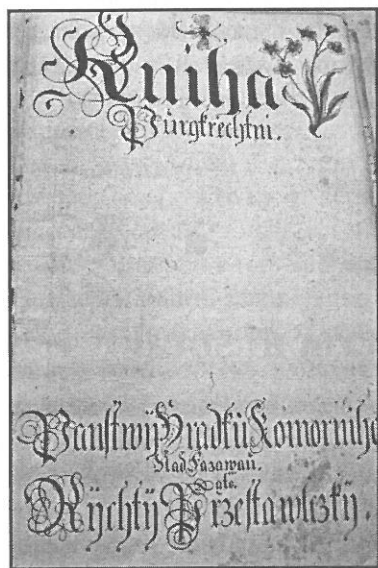 Kniha
Purgkrechtni.
Panstwij Hradku Komorniho
Nad Sazawau.
Rychtÿ Przestawlczkÿ.